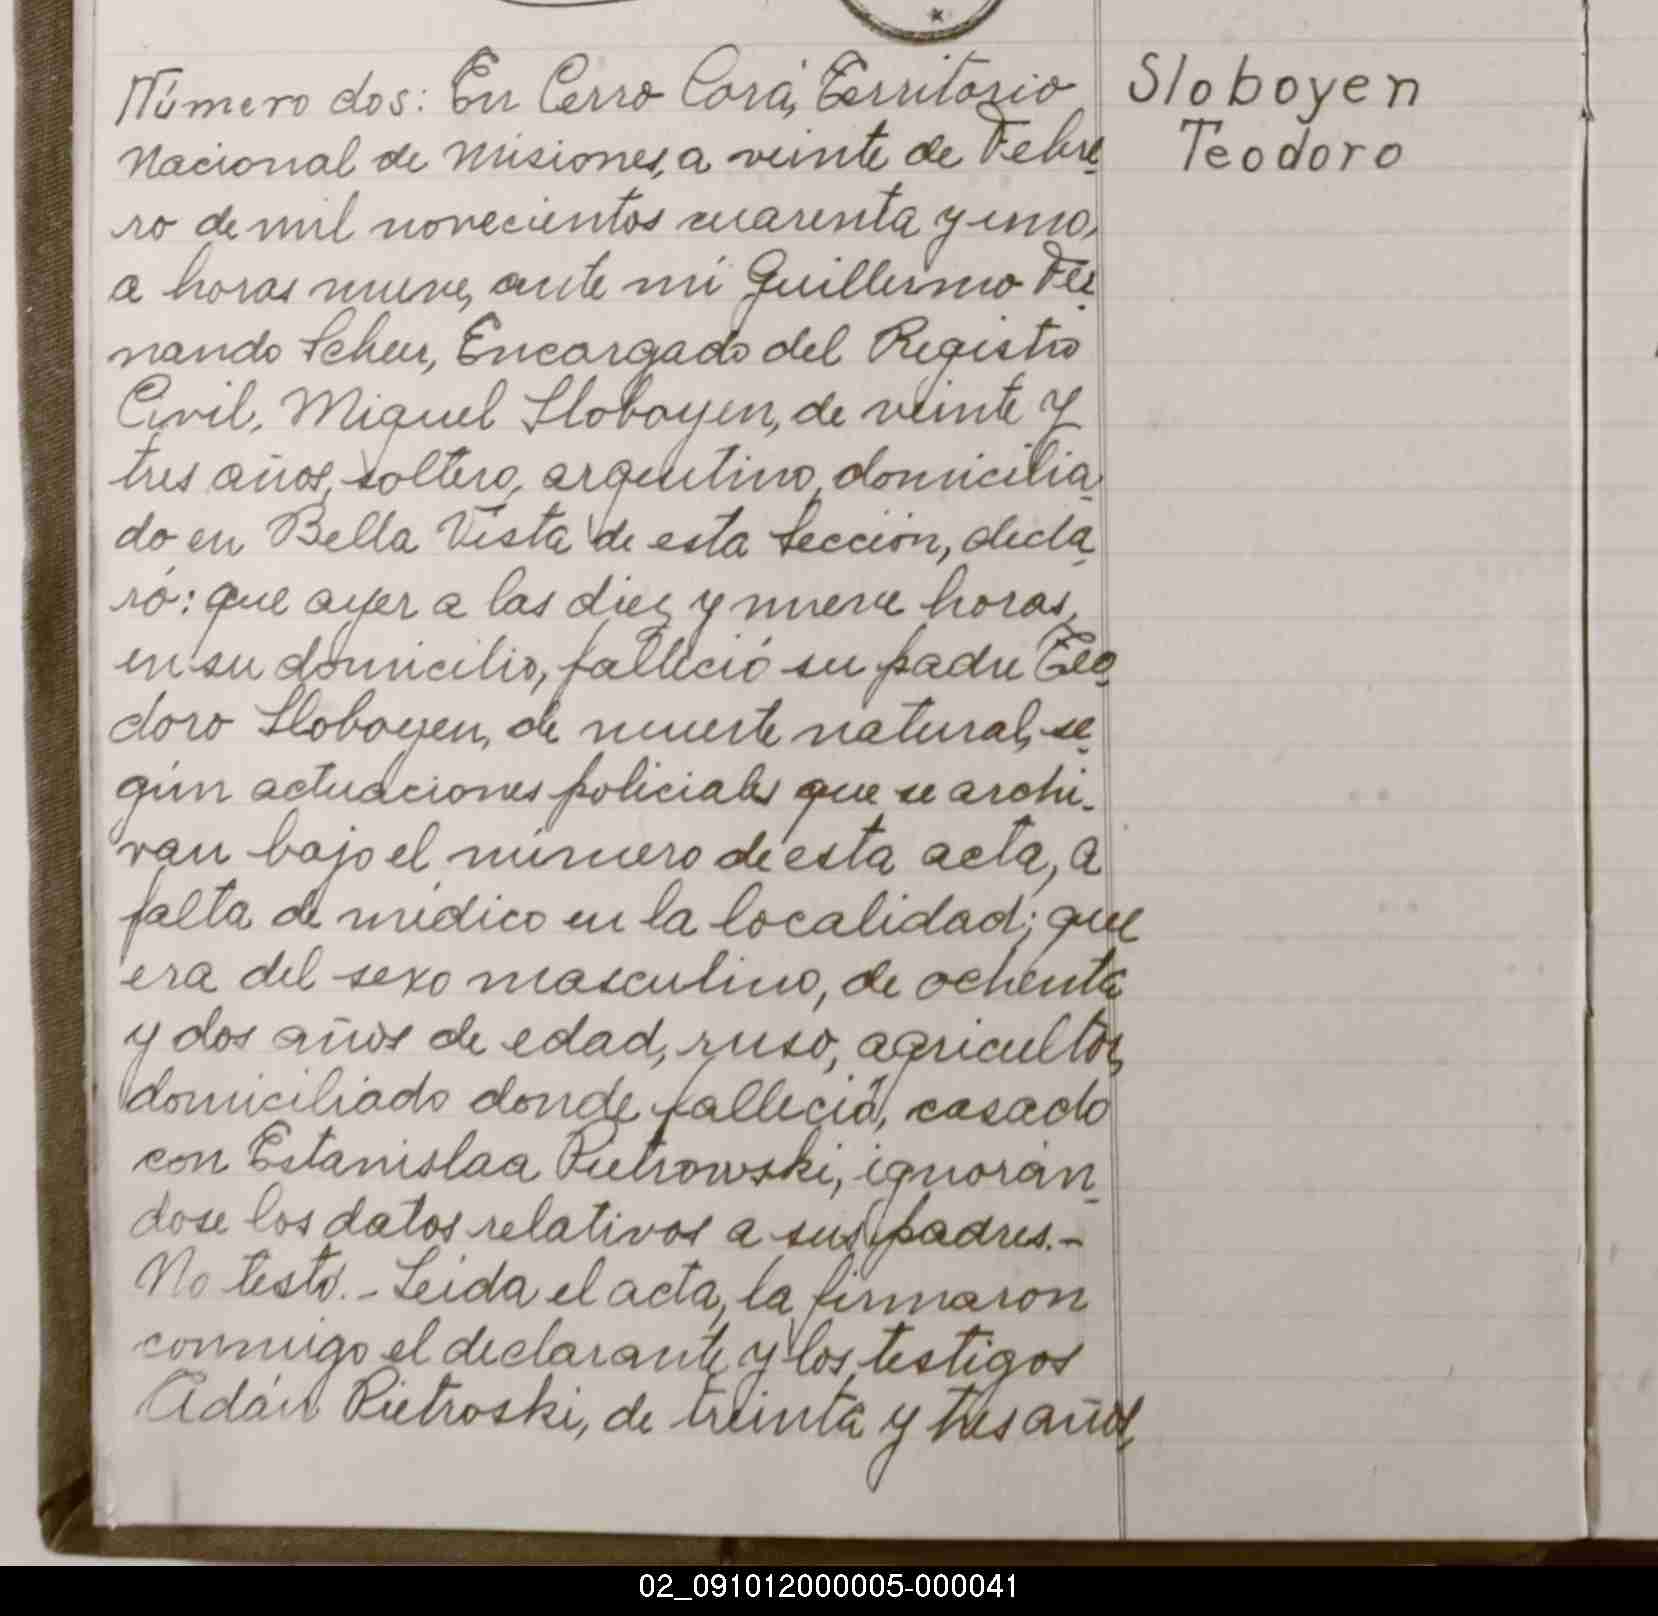 Número dos: En Cerro Corá, Territorio
Nacional de Misiones, a veinte de Febre-
ro de mil novecientos cuarenta y uno,
a horas nueve, ante mi Guillermo Fer-
nando Scheer, Encargado del Registro
Civil, Miguel Sloboyen, de veinte y
tres años, soltero, argentino, domicilia-
do en Bella Vista de esta Sección, decla-
ró: que ayer a las diez y nueve horas,
en su domicilio, falleció su padre Teo-
doro Sloboyen, de muerte natural, se-
gún actuaciones policiales que se archi-
van bajo el número de esta acta, a
falta de médico en la localidad; que
era del sexo masculino, de ochenta
y dos años de edad, ruso, agricultor,
domiciliado donde falleció, casado
con Estanislaa Pietrowski, ignorán-
dose los datos relativos a sus padres.-
No testó.- Leída el acta, la firmaron
conmigo el declarante y los testigos
Adán Pietroski, de treinta y tres años,
Sloboyen
Teodoro
02_091012000005-000041